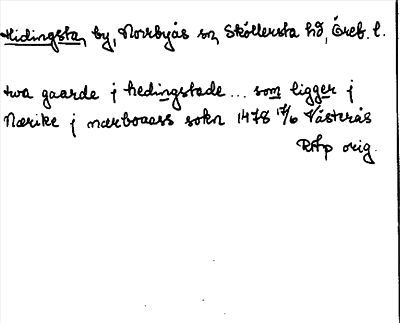 Hidingsta, by, Norrbyås sn, Sköllersta hd, Öreb. l.
twa gaarde j hedingstade... som ligger j
Nærike j nærboaass sokn 1478 17/6 Västerås
RAp orig.